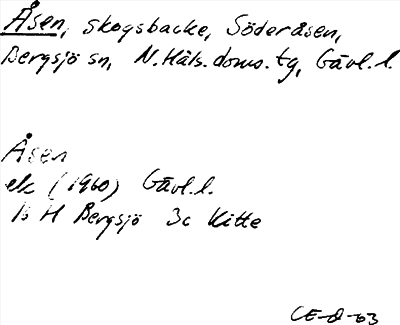 Åsen, skogsbacke, Söderåsen,
Bergsjö sn, N. Häls. doms. tg, Gävl. l.
Åsen
ek (1960) Gävl. l.
15 H Bergsjö 3c Kitte
CE-8-03